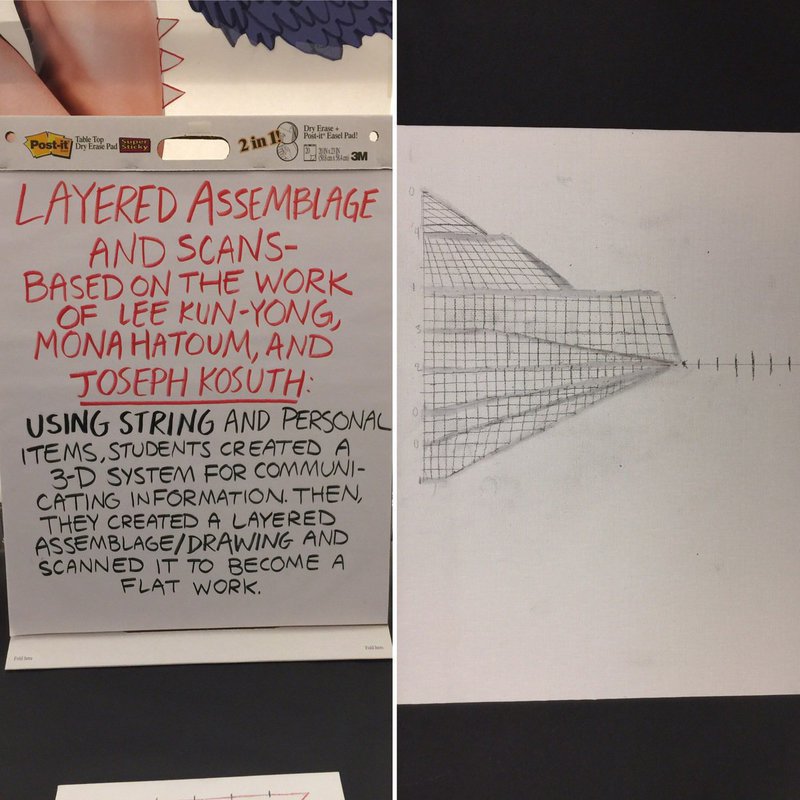 Post-it
Table Top
Dry Erase Pad
Super
Sticky
2 in 1!
Dry Erase +
Post-it® Easel Pad!
20
20 IN x 23 IN
(50.8 cm x 58.4 cm)
3M
LAYERED ASSEMBLAGE
AND SCANS-
BASED ON THE WORK
OF LEE KUN-YONG,
MONA HATOUM, AND
JOSEPH KOSUTH:
USING STRING AND PERSONAL
ITEMS, STUDENTS CREATED A
3-D SYSTEM FOR COMMUNI-
CATING INFORMATION. THEN,
THEY CREATED A LAYERED
ASSEMBLAGE/DRAWING AND
SCANNED IT TO BECOME A
FLAT WORK.
Fold Here
Fold Here